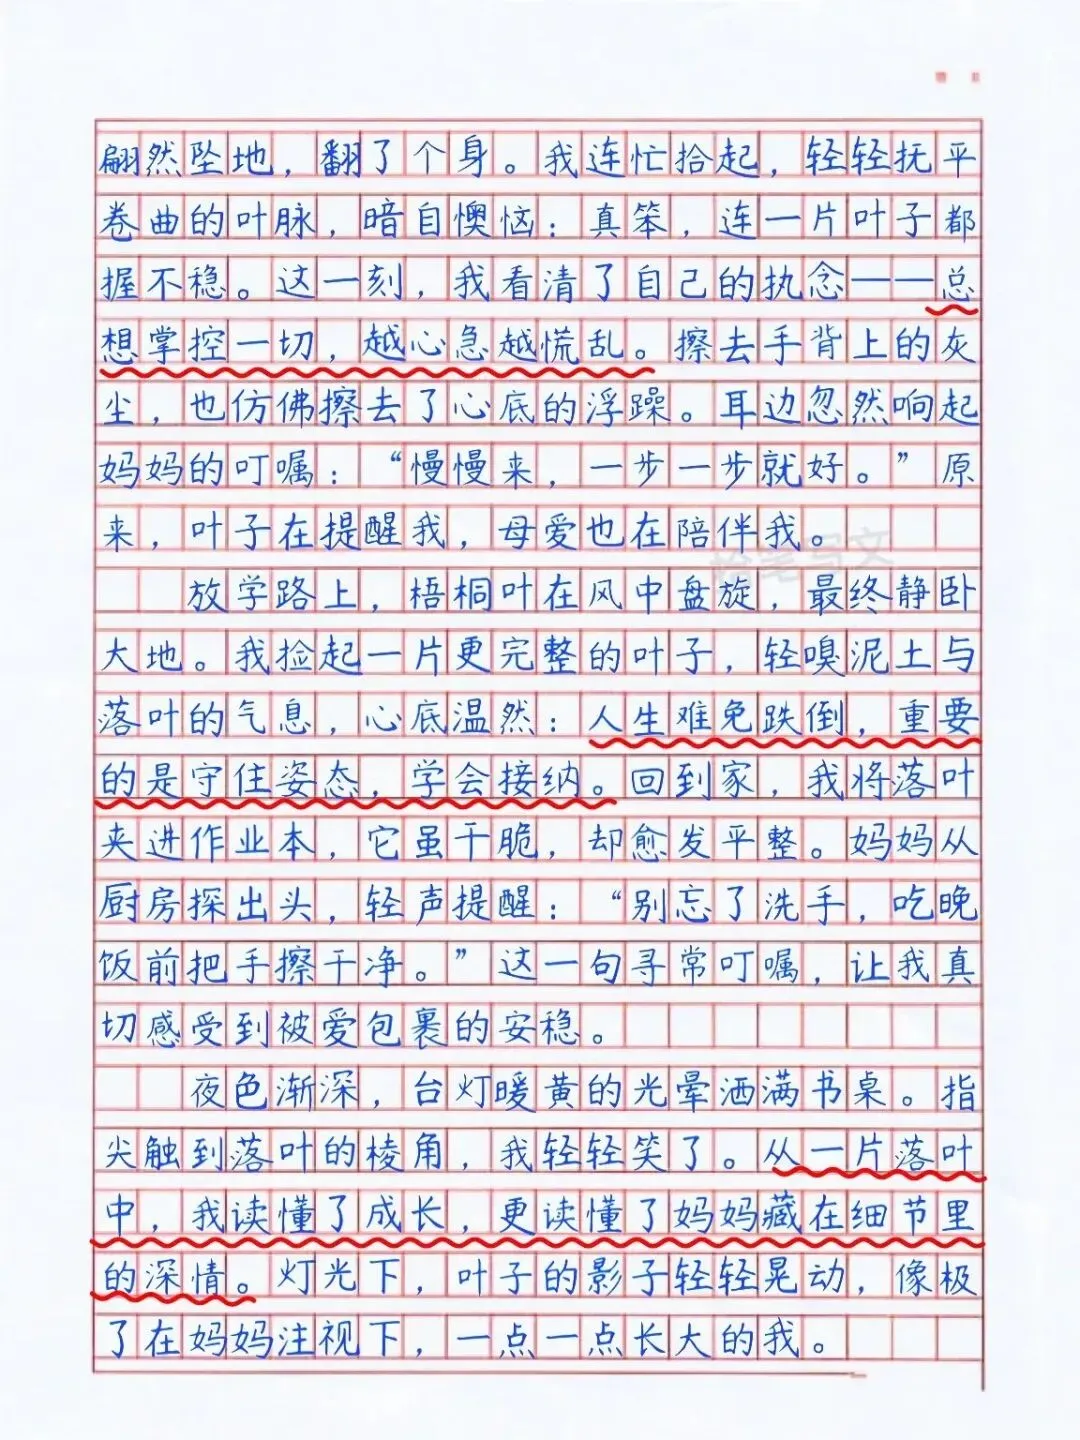 翩然坠地，翻了个身。我连忙拾起，轻轻抚平
卷曲的叶脉，暗自懊恼：真笨，连一片叶子都
握不稳。这一刻，我看清了自己的执念——总
想掌控一切，越心急越慌乱。擦去手背上的灰
尘，也仿佛擦去了心底的浮躁。耳边忽然响起
妈妈的叮嘱：“慢慢来，一步一步就好。”原
来，叶子在提醒我，母爱也在陪伴我。
拾笔写文
放学路上，梧桐叶在风中盘旋，最终静卧
大地。我捡起一片更完整的叶子，轻嗅泥土与
落叶的气息，心底温然：人生难免跌倒，重要
的是守住姿态，学会接纳。回到家，我将落叶
夹进作业本，它虽干脆，却愈发平整。妈妈从
厨房探出头，轻声提醒：“别忘了洗手，吃晚
饭前把手擦干净。”这一句寻常叮嘱，让我真
切感受到被爱包裹的安稳。
夜色渐深，台灯暖黄的光晕洒满书桌。指
尖触到落叶的棱角，我轻轻笑了。从一片落叶
中，我读懂了成长，更读懂了妈妈藏在细节里
的深情。灯光下，叶子的影子轻轻晃动，像极
了在妈妈注视下，一点一点长大的我。